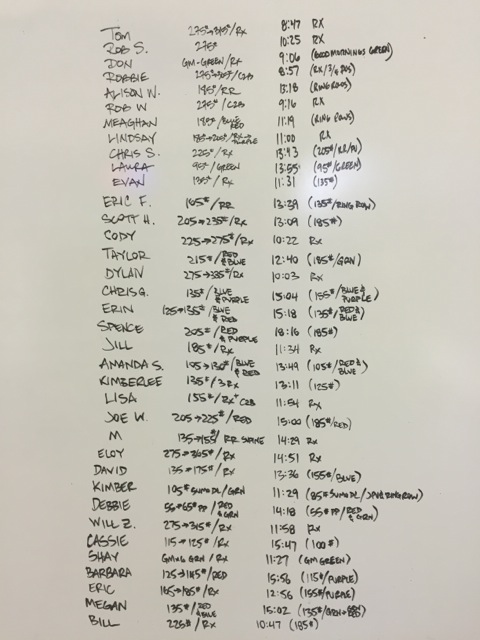 TOM 275#→315#/RX 8:47 RX
ROB S. 275# 10:25 RX
DON GM-GREEN/RX 9:06 (GOOD MORNINGS GREEN)
ROBBIE 275#→305#/C2B 8:57 (RX/3/4 POS)
ALISON W. 185#/RR 13:18 (RING ROWS)
ROB W 275#/C2B 9:16 RX
MEAGHAN 185#/BLUE RED 11:19 (RING ROWS)
LINDSAY 185→205#/RX→PURPLE 11:00 RX
CHRIS S. 225#/RX 13:43 (205#/RR/PU)
LAURA 95#/GREEN 13:55 (95#/GREEN)
EVAN 135#/RX 11:31 (135#)
ERIC F. 165#/RR 13:39 (135#/RING ROW)
SCOTT H. 205→235#/RX 13:09 (185#)
CODY 225→275#/RX 10:22 RX
TAYLOR 215#/RED & BLUE 12:40 (185#/GRN)
DYLAN 275→335#/RX 10:03 RX
CHRIS G. 135#/BLUE & PURPLE 15:04 (155#/BLUE & PURPLE)
ERIN 125→135#/BLUE & RED 15:18 (135#/RED & BLUE)
SPENCE 205#/RED & PURPLE 18:16 (185#)
JILL 185#/RX 11:34 RX
AMANDA S. 105→130#/BLUE & RED 13:49 (105#/RED & BLUE)
KIMBERLEE 135#/3RX 13:11 (125#)
LISA 155#/RX+ C2B 11:54 RX
JOE W. 205→225#/RED 15:00 (185#/RED)
M 135→155#/RR SUPINE 14:29 RX
ELOY 275→365#/RX 14:51 RX
DAVID 135→175#/RX 13:36 (155#/BLUE)
KIMBER 105# SUMO DL/GRN 11:29 (85# SUMO DL/ RING ROW)
DEBBIE 55→65# PP/RED & GRN 14:18 (55# PP/RED & GRN)
WILL Z. 275→315#/RX 11:58 RX
CASSIE 115→125#/RX 15:47 (100#)
SHAY GM→G GRN/RX 11:27 (GM GREEN)
BARBARA 125→145#/RED 15:56 (115#/PURPLE)
ERIC 165→185#/RX 12:56 (155#/PURPLE)
MEGAN 135#/RED & BLUE 15:02 (135#/GRN+RED)
BILL 225#/RX 10:47 (185#)